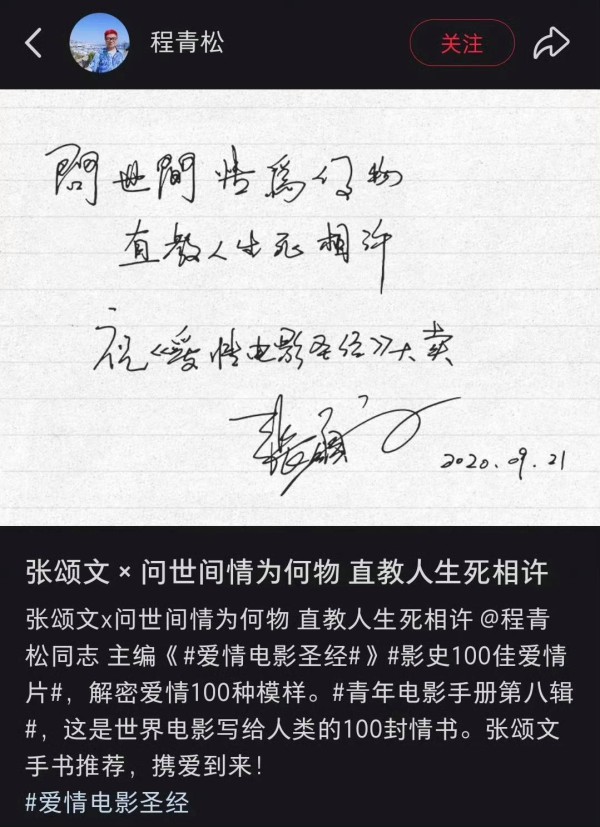 程青松
关注
問世間情爲何物
直教人生死相许
祝《爱情电影圣经》大卖
张颂文
2020.09.21
张颂文 × 问世间情为何物 直教人生死相许
张颂文x问世间情为何物 直教人生死相许 @程青
松同志 主编《#爱情电影圣经#》#影史100佳爱情
片#，解密爱情100种模样。#青年电影手册第八辑
#，这是世界电影写给人类的100封情书。张颂文
手书推荐，携爱到来！
#爱情电影圣经